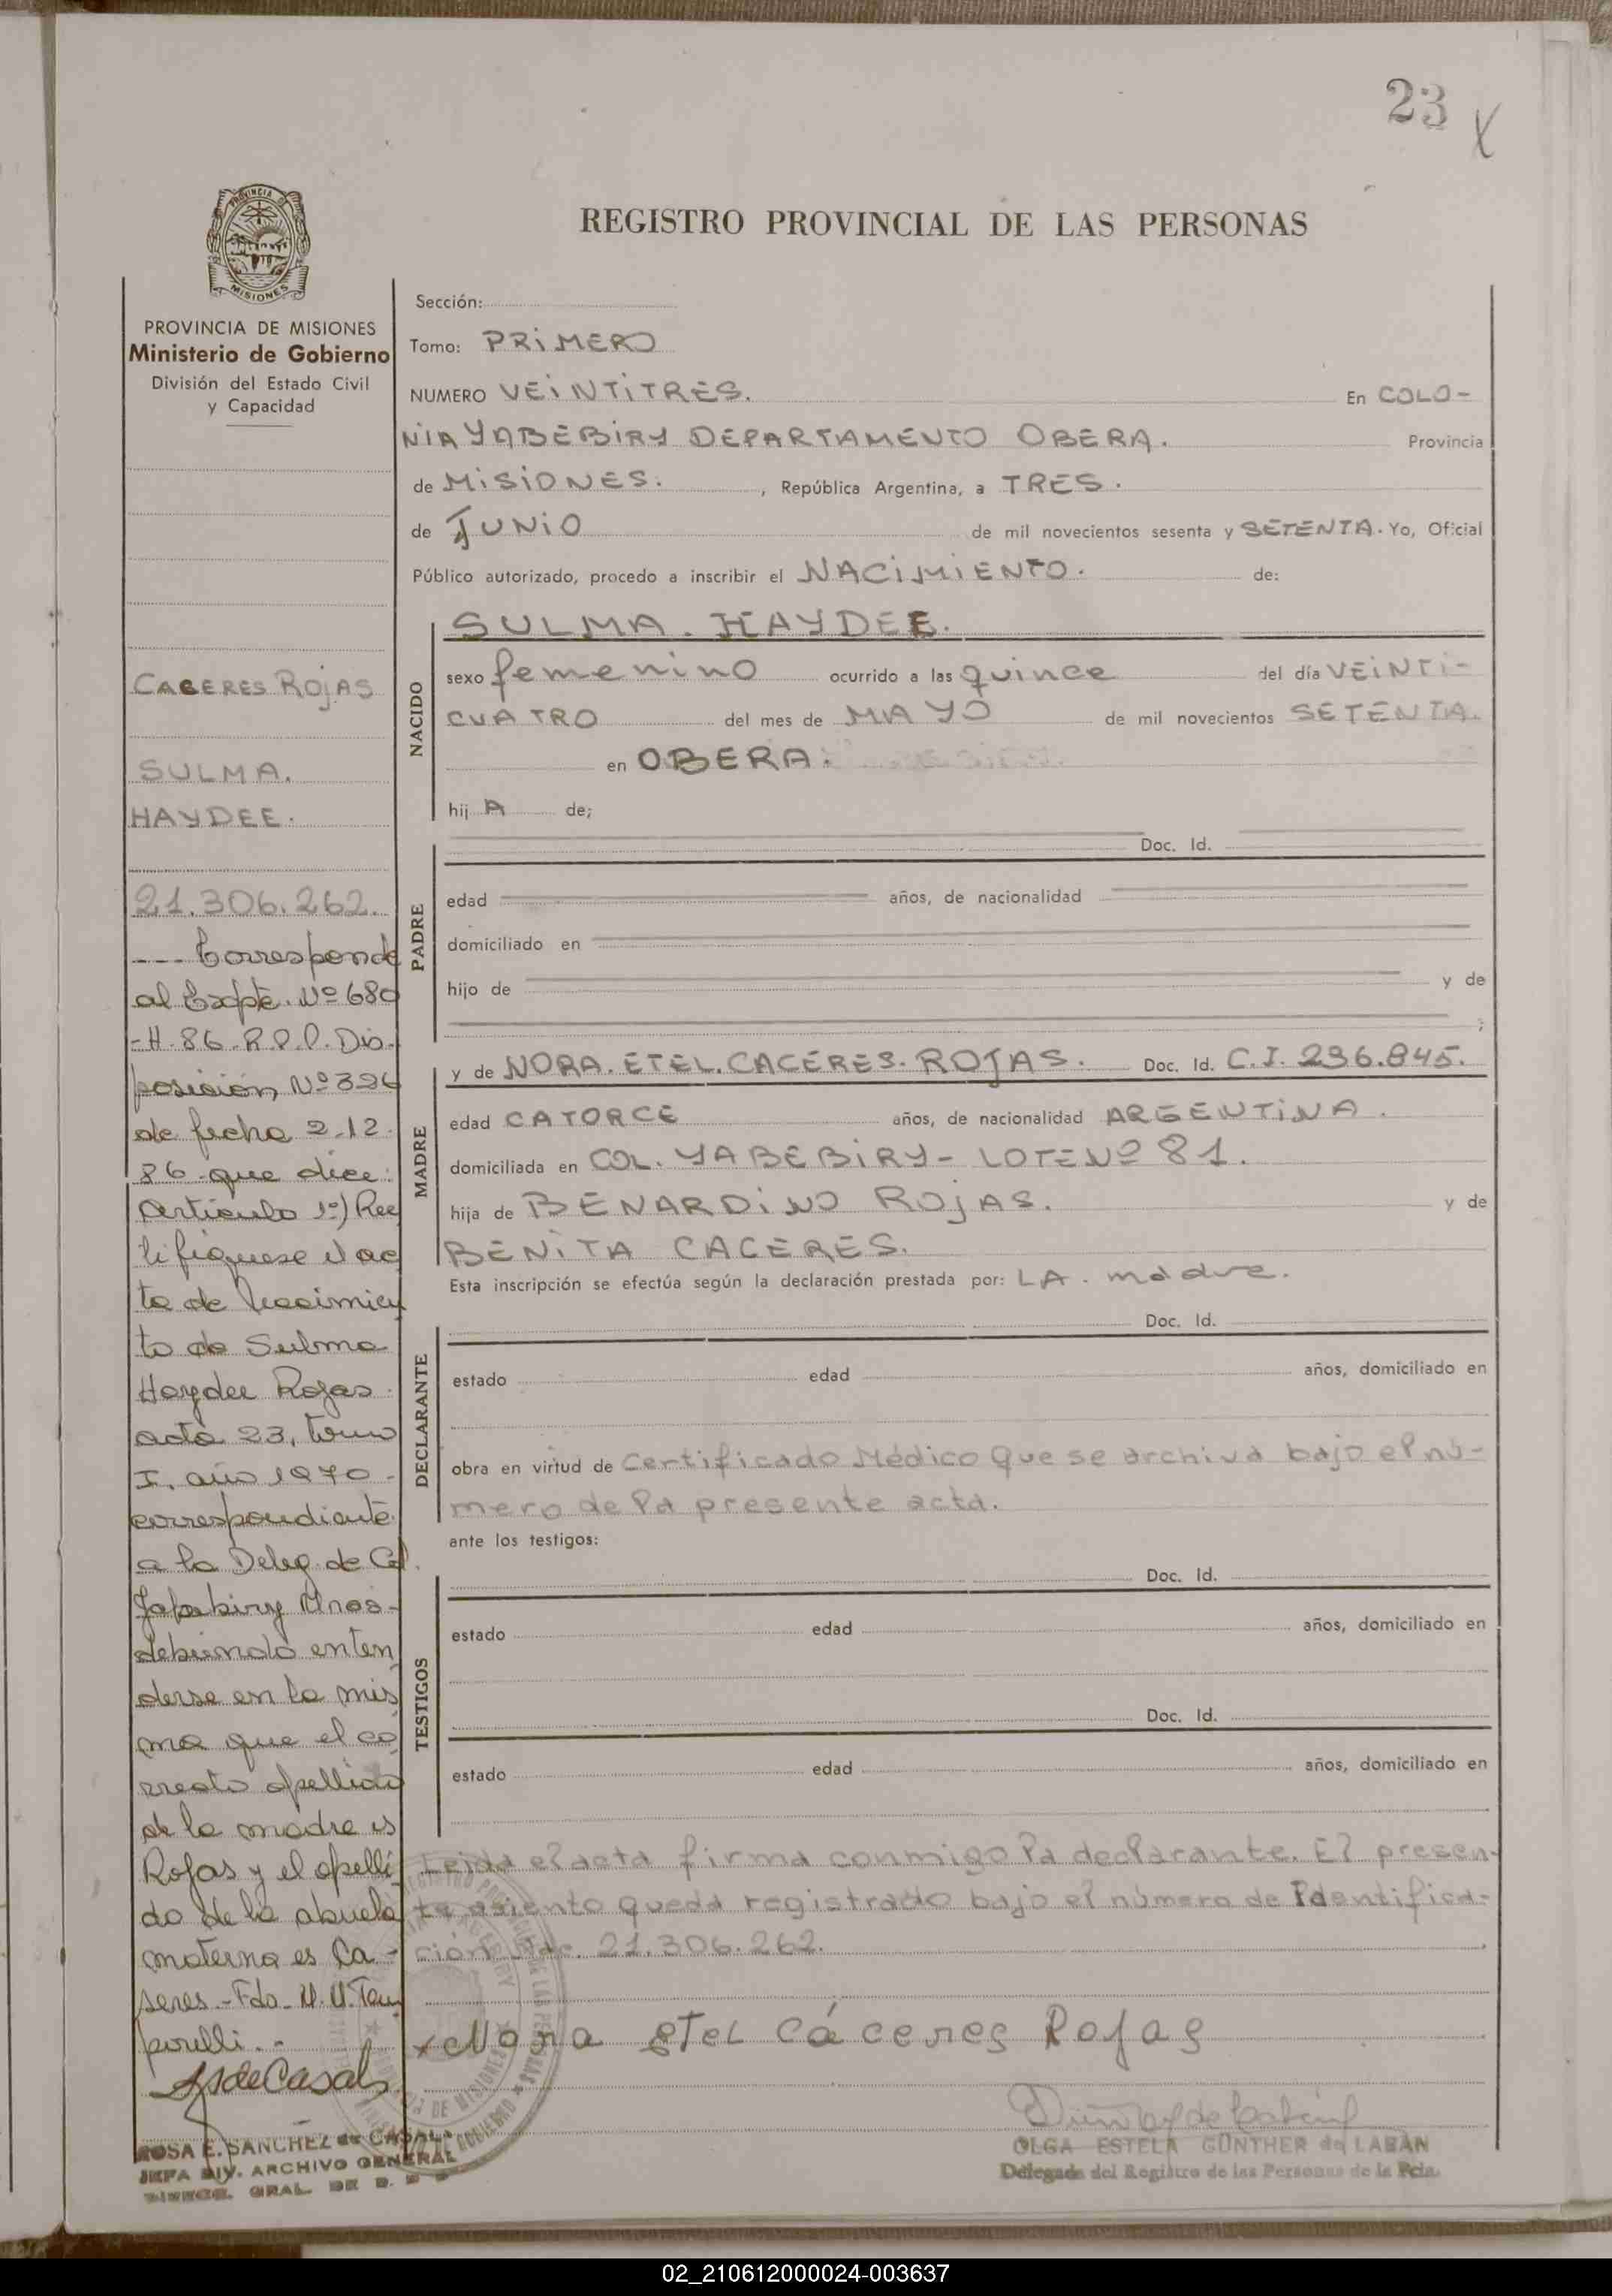 23 X
REGISTRO PROVINCIAL DE LAS PERSONAS
PROVINCIA DE MISIONES
Ministerio de Gobierno
División del Estado Civil
y Capacidad
CACERES ROJAS
SULMA.
HAYDEE.
21.306.262.
--- Corresponde
al Expte. Nº 680
-H-86-R.P.P. Dis-
posición Nº 396
de fecha 2-12-
86-que dice:
Artículo 1º) Rec
tifiquese el ac
ta de Nacimien
to de Sulma
Haydee Rojas
acta 23, tomo
I, año 1970-
correspondiente
a la Deleg. de Col.
Yabebiry Mnes-
debiendo enten
derse en la mis
ma que el co
rrecto apellido
de la madre es
Rojas y el apelli
do de la abuela
materna es Ca-
seres.-Fdo-
ROSA E. SANCHEZ de CASALS
JEFA DIV. ARCHIVO GENERAL
Sección:
Tomo: PRIMERO
NUMERO VEINTITRES. En COLO-
NIA YABEBIRY DEPARTAMENTO OBERA. Provincia
de MISIONES. , República Argentina, a TRES.
de JUNIO de mil novecientos sesenta y SETENTA. Yo, Oficial
Público autorizado, procedo a inscribir el NACIMIENTO. de:
SULMA. HAYDEE.
NACIDO
sexo femenino ocurrido a las quince del día VEINTI-
CUATRO del mes de MAYO de mil novecientos SETENTA.
en OBERA.
hij A de;
PADRE
Doc. Id.
edad años, de nacionalidad
domiciliado en
hijo de y de
;
MADRE
y de NORA. ETEL. CACERES. ROJAS. Doc. Id. C.I. 296.845.
edad CATORCE años, de nacionalidad ARGENTINA.
domiciliada en COL. YABEBIRY- LOTE Nº 81.
hija de BENARDINO ROJAS. y de
BENITA CACERES.
Esta inscripción se efectúa según la declaración prestada por: LA. madre.
DECLARANTE
Doc. Id.
estado edad años, domiciliado en
obra en virtud de Certificado Médico Que se archiva bajo el nú-
mero de la presente acta.
ante los testigos:
TESTIGOS
Doc. Id.
estado edad años, domiciliado en
Doc. Id.
estado edad años, domiciliado en
Leida el acta firma conmigo la declarante. El presen-
te asiento queda registrado bajo el número de Identifica-
ción Nac. 21.306.262.
x Nora Etel Cáceres Rojas
OLGA ESTELA GÜNTHER de LABAN
Delegada del Registro de las Personas de la Pcia.
02_210612000024-003637